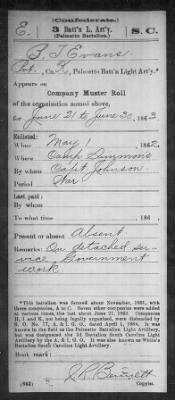 (Confederate.)
E. 3 Batt'n L. Art'y. S.C.
(Palmetto Battalion.)
Evans
Pvt., Co. K, Palmetto Batt'n Light Art'y.*
Appears on
Company Muster Roll
of the organization named above,
for June 21 to June 30, 1862
Enlisted:
When May 1, 1862
Where Camp Simmons
By whom Capt. Johnson
Period War
Last paid:
By whom
To what time, 186 .
Present or absent Absent
Remarks: On detached ser-
vice, Government
work
*This battalion was formed about November, 1861, with
three companies, A to C. Seven other companies were added
at various times, the last about June 21, 1862. Companies
H, I and K, not being legally organized, were disbanded by
S. O. No. 77, A. & I. G. O., dated April 1, 1864. It was
known in the field as the Palmetto Battalion Light Artillery,
but was designated the 3d Battalion South Carolina Light
Artillery by the A. & I. G. O. It was also known as White's
Battalion South Carolina Light Artillery.
Book mark:
(642) Bennett
Copyist.